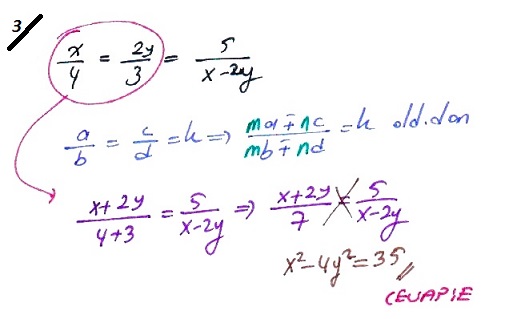 3
x/4 = 2y/3 = 5/(x-2y)
a/b = c/d = k ⇒ (ma ∓ nc)/(mb ∓ nd) = k old.dan
(x+2y)/(4+3) = 5/(x-2y) ⇒ (x+2y)/7 = 5/(x-2y)
x²-4y²=35
CEVAPIE